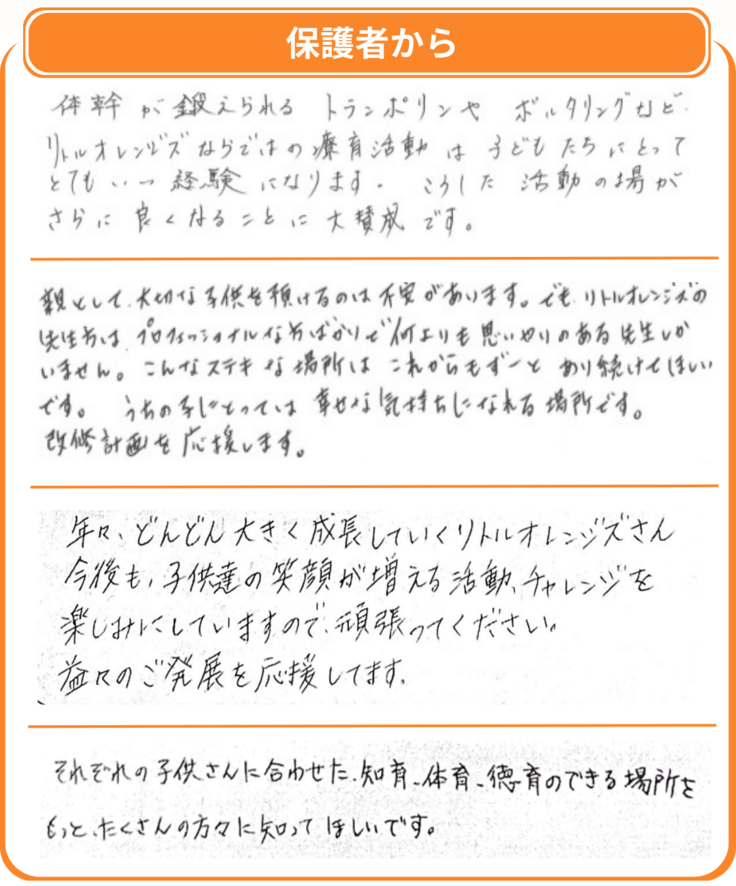 保護者から
体幹が鍛えられるトランポリンやボルタリングなど、
リトルオレンジズならではの療育活動は子どもたちにとって
とてもいい経験になります。こうした活動の場が
さらに良くなることに大賛成です。
親として、大切な子供を預けるのは不安があります。でも、リトルオレンジズの
先生方は、プロフェッショナルな方ばかりで何よりも思いやりのある先生しか
いません。こんなステキな場所はこれからもずーとあり続けてほしい
です。うちの子にとっては幸せな気持ちになれる場所です。
改修計画を応援します。
年々、どんどん大きく成長していくリトルオレンジズさん
今後も、子供達の笑顔が増える活動、チャレンジを
楽しみにしていますので、頑張ってください。
益々のご発展を応援してます。
それぞれの子供さんに合わせた、知育、体育、徳育のできる場所を
もっと、たくさんの方々に知ってほしいです。